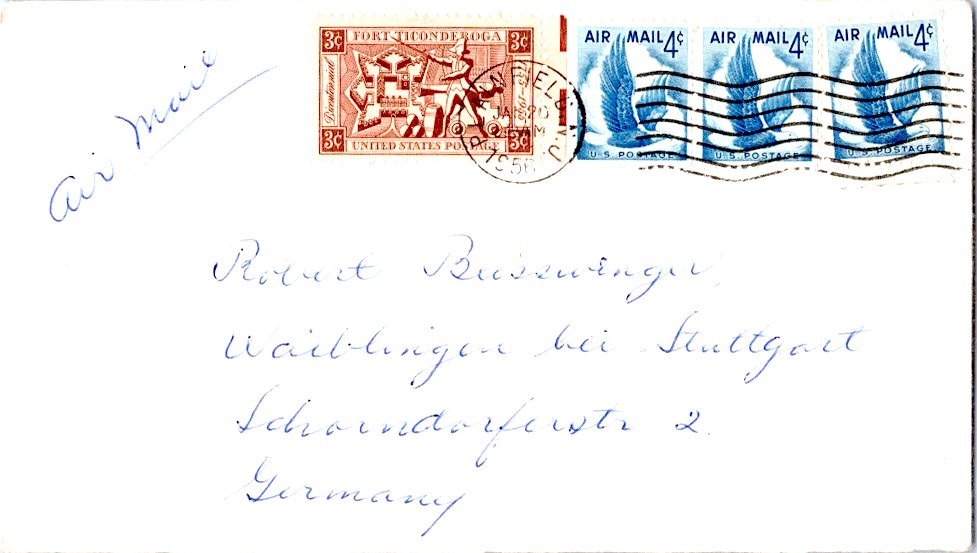 Air Mail
3¢ FORT TICONDEROGA 3¢
Bicentennial
1755-1955
3¢ UNITED STATES POSTAGE 3¢
PLAINFIELD N.J.
JAN 20
AM
1956
AIR MAIL 4¢
U.S. POSTAGE
AIR MAIL 4¢
U.S. POSTAGE
AIR MAIL 4¢
U.S. POSTAGE
Robert Beisswenger
Waiblingen bei Stuttgart
Schorndorferstr 2.
Germany